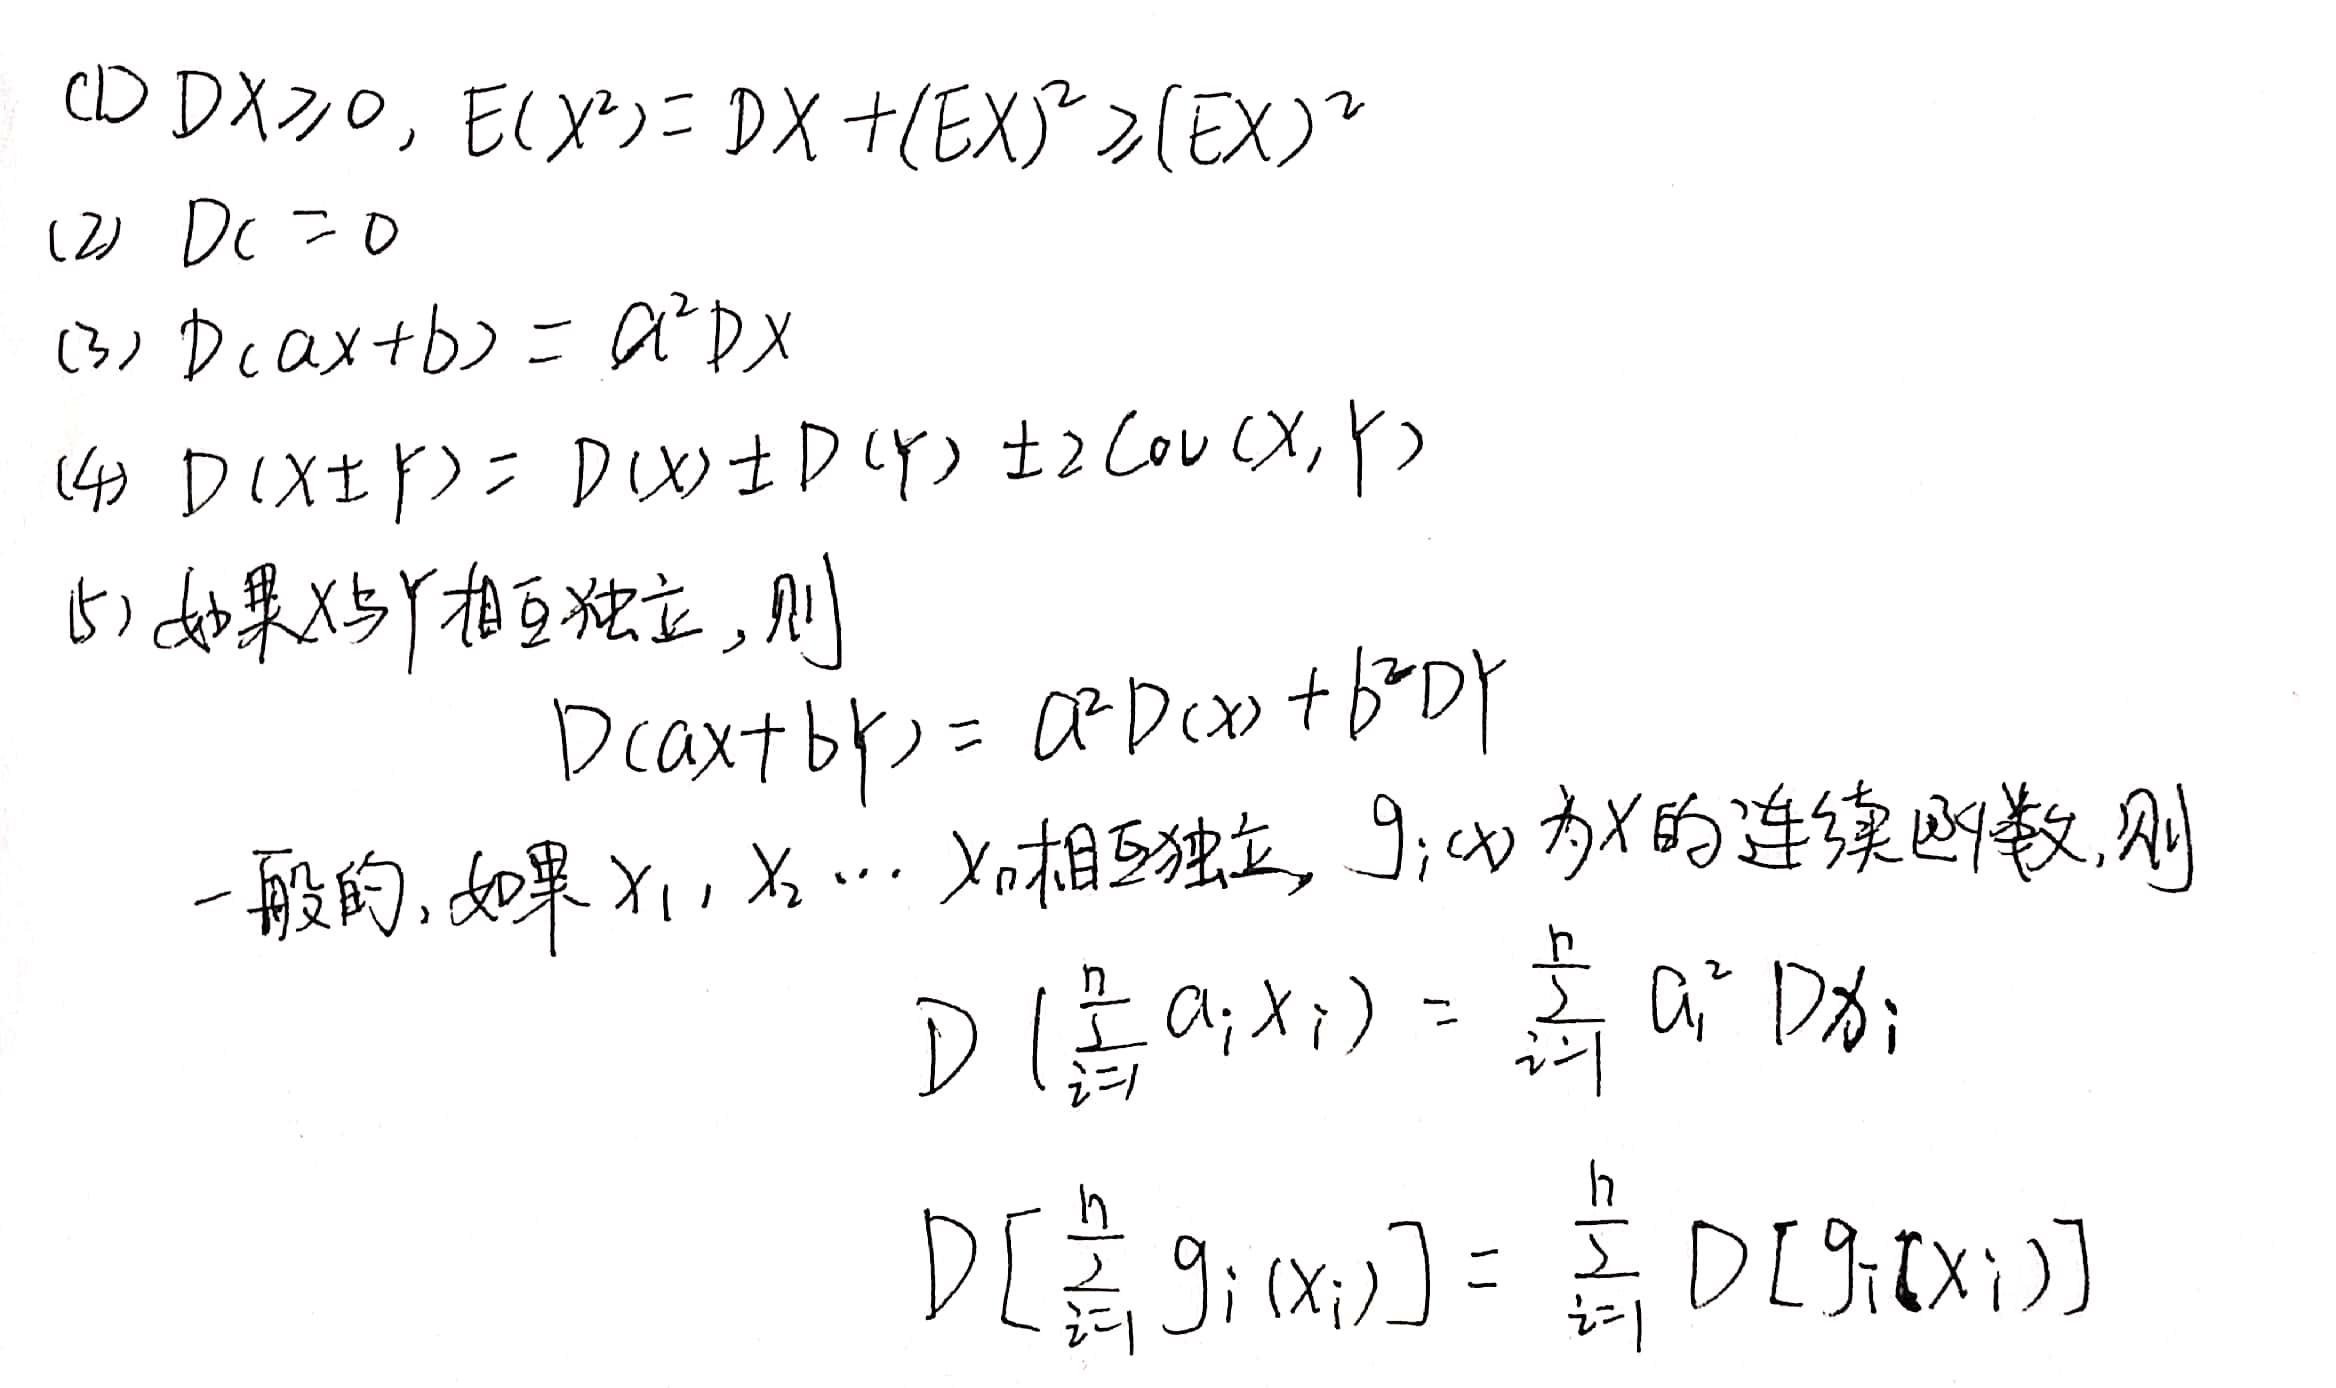 (1) DX≥0, E(X²)=DX+(EX)²≥(EX)²
(2) Dc=0
(3) D(ax+b)=a²DX
(4) D(X±Y)=D(X)±D(Y)±2Cov(X,Y)
(5) 如果X与Y相互独立,则
D(ax+bY)=a²D(x)+b²DY
一般的,如果x₁,x₂…xₙ相互独立,gᵢ(x)为X的连续函数,则
D(∑ⁿᵢ₌₁ aᵢxᵢ)=∑ⁿᵢ₌₁ aᵢ²Dxᵢ
D[∑ⁿᵢ₌₁ gᵢ(xᵢ)]=∑ⁿᵢ₌₁ D[gᵢ(xᵢ)]